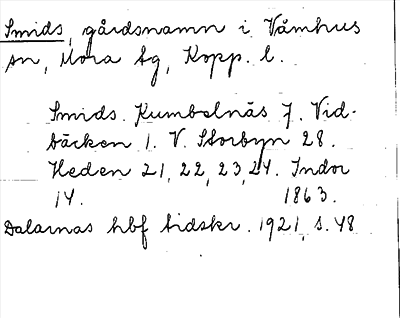 Smids, gårdsnamn i Våmhus
sn, Mora tg, Kopp. l.
Smids. Kumbelnäs 7. Vid-
bäcken 1. V. Storbyn 28.
Heden 21, 22, 23, 24. Indor
14. 1863.
Dalarnas hbf tidskr. 1921, s. 48